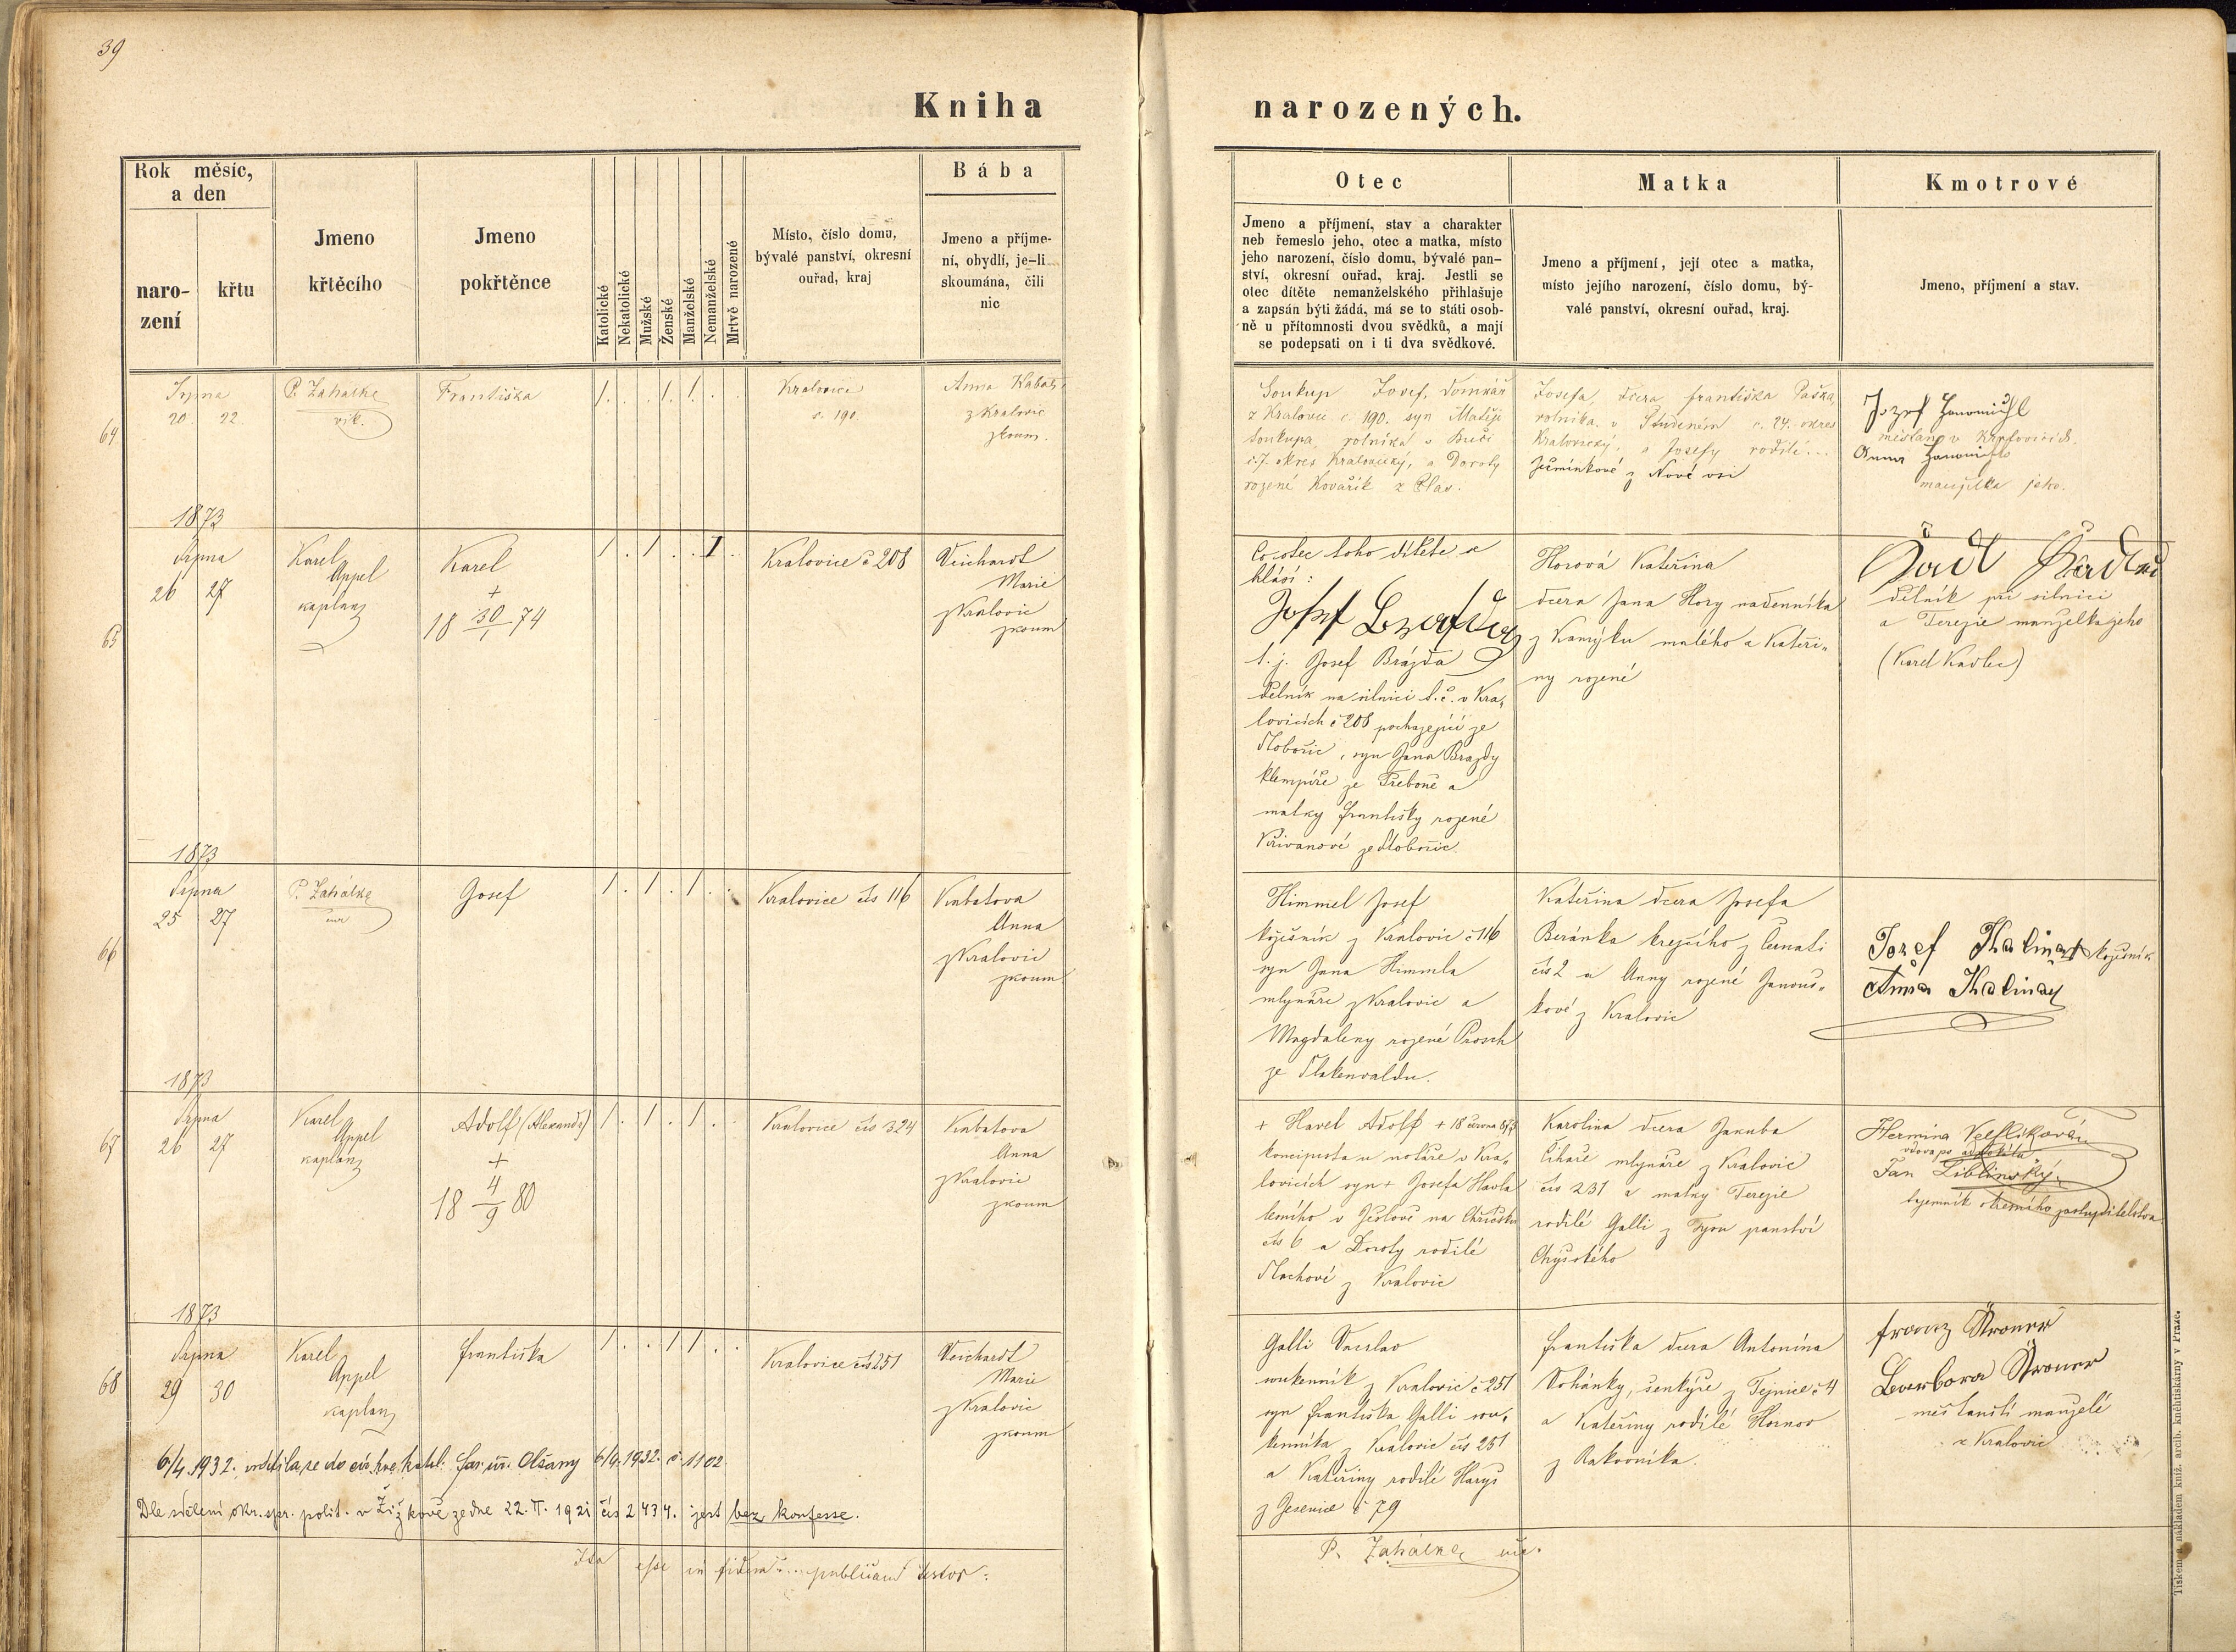 39
Kniha
narozených.
Rok měsíc,
a den
naro-
zení
křtu
Jmeno
křtěcího
Jmeno
pokřtěnce
Katolické
Nekatolické
Mužské
Ženské
Manželské
Nemanželské
Mrtvě narozené
Místo, číslo domu,
bývalé panství, okresní
ouřad, kraj
Bába
Jmeno a příjme-
ní, obydlí, je-li
skoumána, čili
nic
Otec
Jmeno a příjmení, stav a charakter
neb řemeslo jeho, otec a matka, místo
jeho narození, číslo domu, bývalé pan-
ství, okresní ouřad, kraj. Jestli se
otec dítěte nemanželského přihlašuje
a zapsán býti žádá, má se to státi osob-
ně u přítomnosti dvou svědků, a mají
se podepsati on i ti dva svědkové.
Matka
Jmeno a příjmení, její otec a matka,
místo jejího narození, číslo domu, bý-
valé panství, okresní ouřad, kraj.
Kmotrové
Jmeno, příjmení a stav.
64
Srpna
20. 22.
P. Zahálka
vik.
Františka
1. . . 1. 1. . .
Kralovice
č. 190.
Anna Kabát
z Kralovic
zkoum.
Soukup Josef, domkář
z Kralovic č. 190. syn Matěje
Soukupa rolníka v Buči
č. 7. okres Kralovický, a Doroty
rozené Kovařík z Plas.
Josefa, dcera Františka Paška,
rolníka v Studeném č. 24. okres
Kralovický, a Josefy rodilé
Ječmínkové z Nové vsi
Jozef
měšťan v Kralovicích.
Anna
manželka jeho.
1873
65
Srpna
26 27
Karel
Appel
kaplan
Karel
+
18 30/1 74
1 . 1 . . 1 .
Kralovice č 208
Weichardt
Marie
z Kralovic
zkoum
Co otec toho dítěte se
hlásí:
Josef
t. j. Josef Brázda
dělník na silnici t. č. v Kra-
lovicích č 208 pocházející ze
syn Jana Brazdy
klempíře ze Třeboně a
matky Františky rozené
Křivanové
Horová Kateřina
dcera Jana Hory nadenníka
z Kamýku malého a Kateři-
ny rozené
Karl
dělník při silnici
a Terezie manželka jeho
(Karel Kadlec)
1873
66
Srpna
25 27
P. Zahálka
Josef
1 . 1 . 1 . .
Kralovice čís 116
Kabatova
Anna
z Kralovic
zkoum
Himmel Josef
kožešník z Kralovic č 116
syn Jana Himmla
mlynáře z Kralovic a
Magdaleny rozené Prosch
Kateřina dcera Josefa
Beránka krejčího z
čís 2 a Anny rozené Janouš-
kové z Kralovic
Jozef
kožešník
Anna
1873
67
Srpna
26 27
Karel
Appel
kaplan
Adolf (Alexandr)
+
18 4/9 80
1 . 1 . 1 . .
Kralovice čís 324
Kabatova
Anna
z Kralovic
zkoum
+ Havel Adolf + 18 června 873
koncipista u notáře v Kra-
lovicích syn + Josefa Havla
čís 6 a Doroty rodilé
z Kralovic
Karolina dcera Jakuba
Čihaře mlynáře z Kralovic
čís 231 a matky Terezie
rodilé Galli z panství
Chyšského
Hermína
vdova po
Jan Liblínský
tajemník okresního zastupitelstva
1873
68
Srpna
29 30
Karel
Appel
kaplan
Františka
1 . . 1 1 . .
Kralovice čís 251
Weichardt
Marie
z Kralovic
zkoum
Galli Václav
soukenník z Kralovic č 251
syn Františka Galli sou-
kenníka z Kralovic čís 251
a Kateřiny rodilé
z Jesenice č 79
Františka dcera Antonína
šenkýře z Tejnice č 4
a Kateřiny rodilé
z Rakovníka.
Franz Kroner
Barbora Kroner
měšťanští manželé
z Kralovic
6/4. 1932. vrátila se do círk. kat. far. úř. Olšany 6/4. 1932. č. 1102
Dle sdělení okr. spr. polit. v Žižkově ze dne 22. II. 1921 čís 2434. jest bez konfesse.
Ita esse in fidem publicam testor:
P. Zahálka
Tiskem a nákladem kníž. arcib. knihtiskárny v Praze.